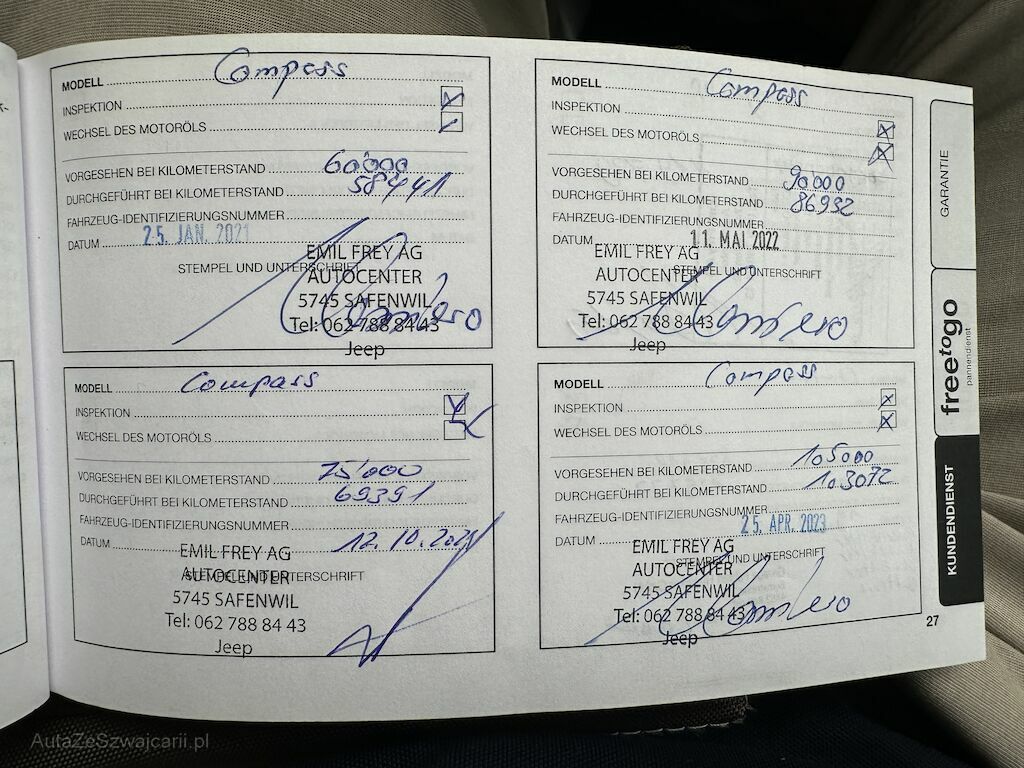 MODELL Compass
INSPEKTION
WECHSEL DES MOTORÖLS
VORGESEHEN BEI KILOMETERSTAND 60'000
DURCHGEFÜHRT BEI KILOMETERSTAND 58441
FAHRZEUG-IDENTIFIZIERUNGSNUMMER
DATUM 25. JAN. 2021
STEMPEL UND UNTERSCHRIFT
EMIL FREY AG
AUTOCENTER
5745 SAFENWIL
Tel: 062 788 84 43
Jeep
MODELL Compass
INSPEKTION
WECHSEL DES MOTORÖLS
VORGESEHEN BEI KILOMETERSTAND 75'000
DURCHGEFÜHRT BEI KILOMETERSTAND 69391
FAHRZEUG-IDENTIFIZIERUNGSNUMMER
DATUM 12.10.2021
STEMPEL UND UNTERSCHRIFT
EMIL FREY AG
AUTOCENTER
5745 SAFENWIL
Tel: 062 788 84 43
Jeep
MODELL Compass
INSPEKTION
WECHSEL DES MOTORÖLS
VORGESEHEN BEI KILOMETERSTAND 90'000
DURCHGEFÜHRT BEI KILOMETERSTAND 86932
FAHRZEUG-IDENTIFIZIERUNGSNUMMER
DATUM 11. MAI 2022
STEMPEL UND UNTERSCHRIFT
EMIL FREY AG
AUTOCENTER
5745 SAFENWIL
Tel: 062 788 84 43
Jeep
MODELL Compass
INSPEKTION
WECHSEL DES MOTORÖLS
VORGESEHEN BEI KILOMETERSTAND 105000
DURCHGEFÜHRT BEI KILOMETERSTAND 103072
FAHRZEUG-IDENTIFIZIERUNGSNUMMER
DATUM 25. APR. 2023
STEMPEL UND UNTERSCHRIFT
EMIL FREY AG
AUTOCENTER
5745 SAFENWIL
Tel: 062 788 84 43
Jeep
GARANTIE
freetogo
pannendienst
KUNDENDIENST
27
AutaZeSzwajcarii.pl